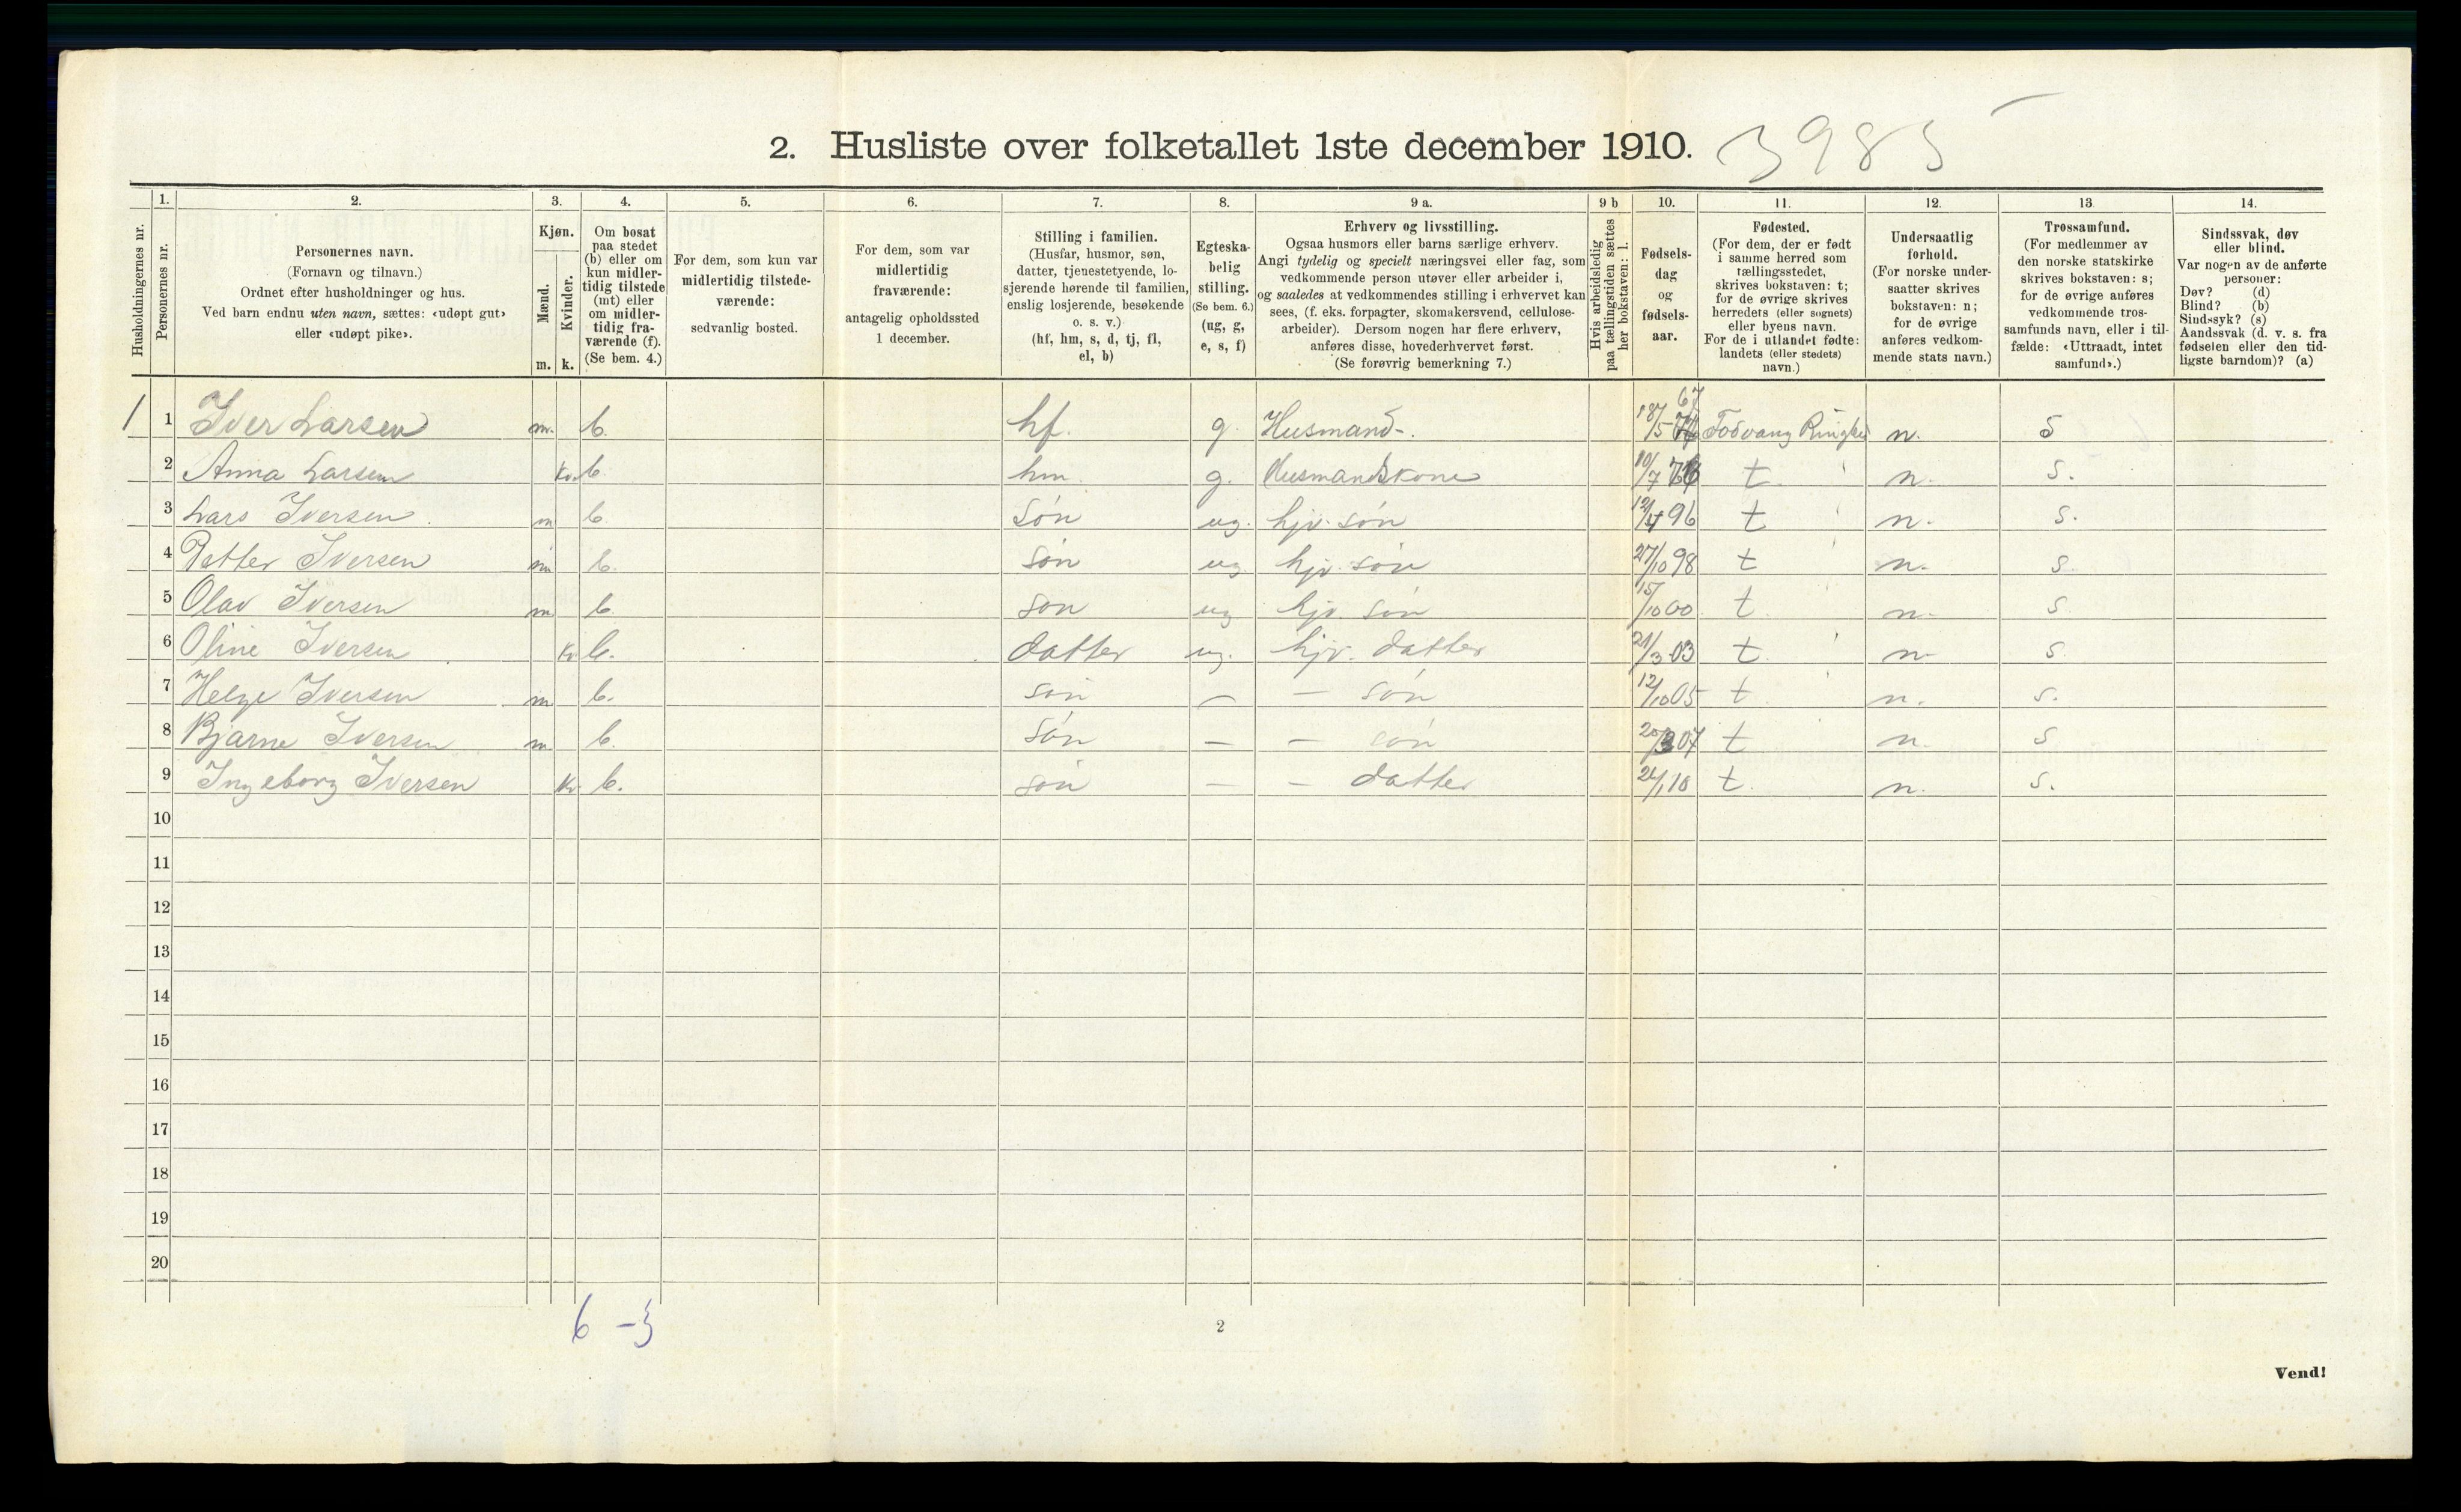 2. Husliste over folketallet 1ste december 1910. 3985
Husholdningernes nr.
1.
Personernes nr.
2.
Personernes navn.
(Fornavn og tilnavn.)
Ordnet efter husholdninger og hus.
Ved barn endnu uten navn, sættes: «udøpt gut»
eller «udøpt pike».
3.
Kjøn.
Mænd.
m.
Kvinder.
k.
4.
Om bosat
paa stedet
(b) eller om
kun midler-
tidig tilstede
(mt) eller
om midler-
tidig fra-
værende (f).
(Se bem. 4.)
5.
For dem, som kun var
midlertidig tilstede-
værende:
sedvanlig bosted.
6.
For dem, som var
midlertidig
fraværende:
antagelig opholdssted
1 december.
7.
Stilling i familien.
(Husfar, husmor, søn,
datter, tjenestetyende, lo-
sjerende hørende til familien,
enslig losjerende, besøkende
o. s. v.)
(hf, hm, s, d, tj, fl,
el, b)
8.
Egteska-
belig
stilling.
(Se bem. 6.)
(ug, g,
e, s, f)
9 a.
Erhverv og livsstilling.
Ogsaa husmors eller barns særlige erhverv.
Angi tydelig og specielt næringsvei eller fag, som
vedkommende person utøver eller arbeider i,
og saaledes at vedkommendes stilling i erhvervet kan
sees, (f. eks. forpagter, skomakersvend, cellulose-
arbeider). Dersom nogen har flere erhverv,
anføres disse, hovederhvervet først.
(Se forøvrig bemerkning 7.)
9 b
Hvis arbeidsledig
paa tællingstiden sættes
her bokstaven: l.
10.
Fødsels-
dag
og
fødsels-
aar.
11.
Fødested.
(For dem, der er født
i samme herred som
tællingsstedet,
skrives bokstaven: t;
for de øvrige skrives
herredets (eller sognets)
eller byens navn.
For de i utlandet fødte:
landets (eller stedets)
navn.)
12.
Undersaatlig
forhold.
(For norske under-
saatter skrives
bokstaven: n;
for de øvrige
anføres vedkom-
mende stats navn.)
13.
Trossamfund.
(For medlemmer av
den norske statskirke
skrives bokstaven: s;
for de øvrige anføres
vedkommende tros-
samfunds navn, eller i til-
fælde: «Uttraadt, intet
samfund».)
14.
Sindssvak, døv
eller blind.
Var nogen av de anførte
personer:
Døv? (d)
Blind? (b)
Sindssyk? (s)
Aandssvak (d. v. s. fra
fødselen eller den tid-
ligste barndom)? (a)
1 1 Iver Larsen m. b. hf. g. Husmand. 18/5 67 n. S
2 Anna Larsen kv. b hm. g. Husmandskone 10/7 t n. s.
3 Lars Iversen m b søn ug. hjv. søn 12/4 96 t n. s.
4 Petter Iversen m b. søn ug. hjv. søn 27/10 98 t n. s
5 Olav Iversen m b. søn ug hjv. søn 15/10 00 t. n. s
6 Oline Iversen kv b. datter ug. hjv. datter 21/3 03 t. n s
7 Helge Iversen m b. søn — — søn 12/10 05 t n. s.
8 Bjarne Iversen m b. søn — — søn 20/3 07 t n. s
9 Ingeborg Iversen kv. b. søn — — datter 24/1 10 t. n. s.
10
11
12
13
14
15
16
17
18
19
20
6 - 3
2
Vend!